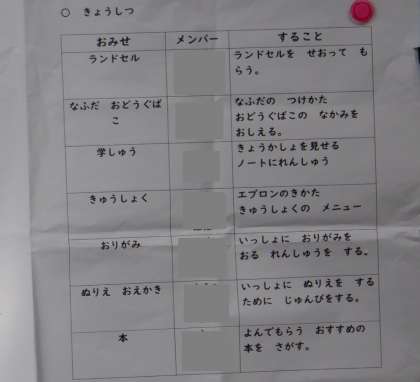 ○ きょうしつ
おみせ メンバー すること
ランドセル
ランドセルを せおって も
らう。
なふだ おどうぐば
こ
なふだの つけかた
おどうぐばこの なかみを
おしえる。
学しゅう
きょうかしょを見せる
ノートにれんしゅう
きゅうしょく
エプロンのきかた
きゅうしょくの メニュー
おりがみ
いっしょに おりがみを
おる れんしゅうを する。
ぬりえ おえかき
いっしょに ぬりえを する
ために じゅんびをする。
本
よんでもらう おすすめの
本を さがす。